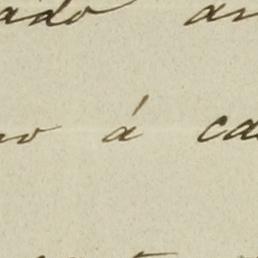 ado an
no á ca